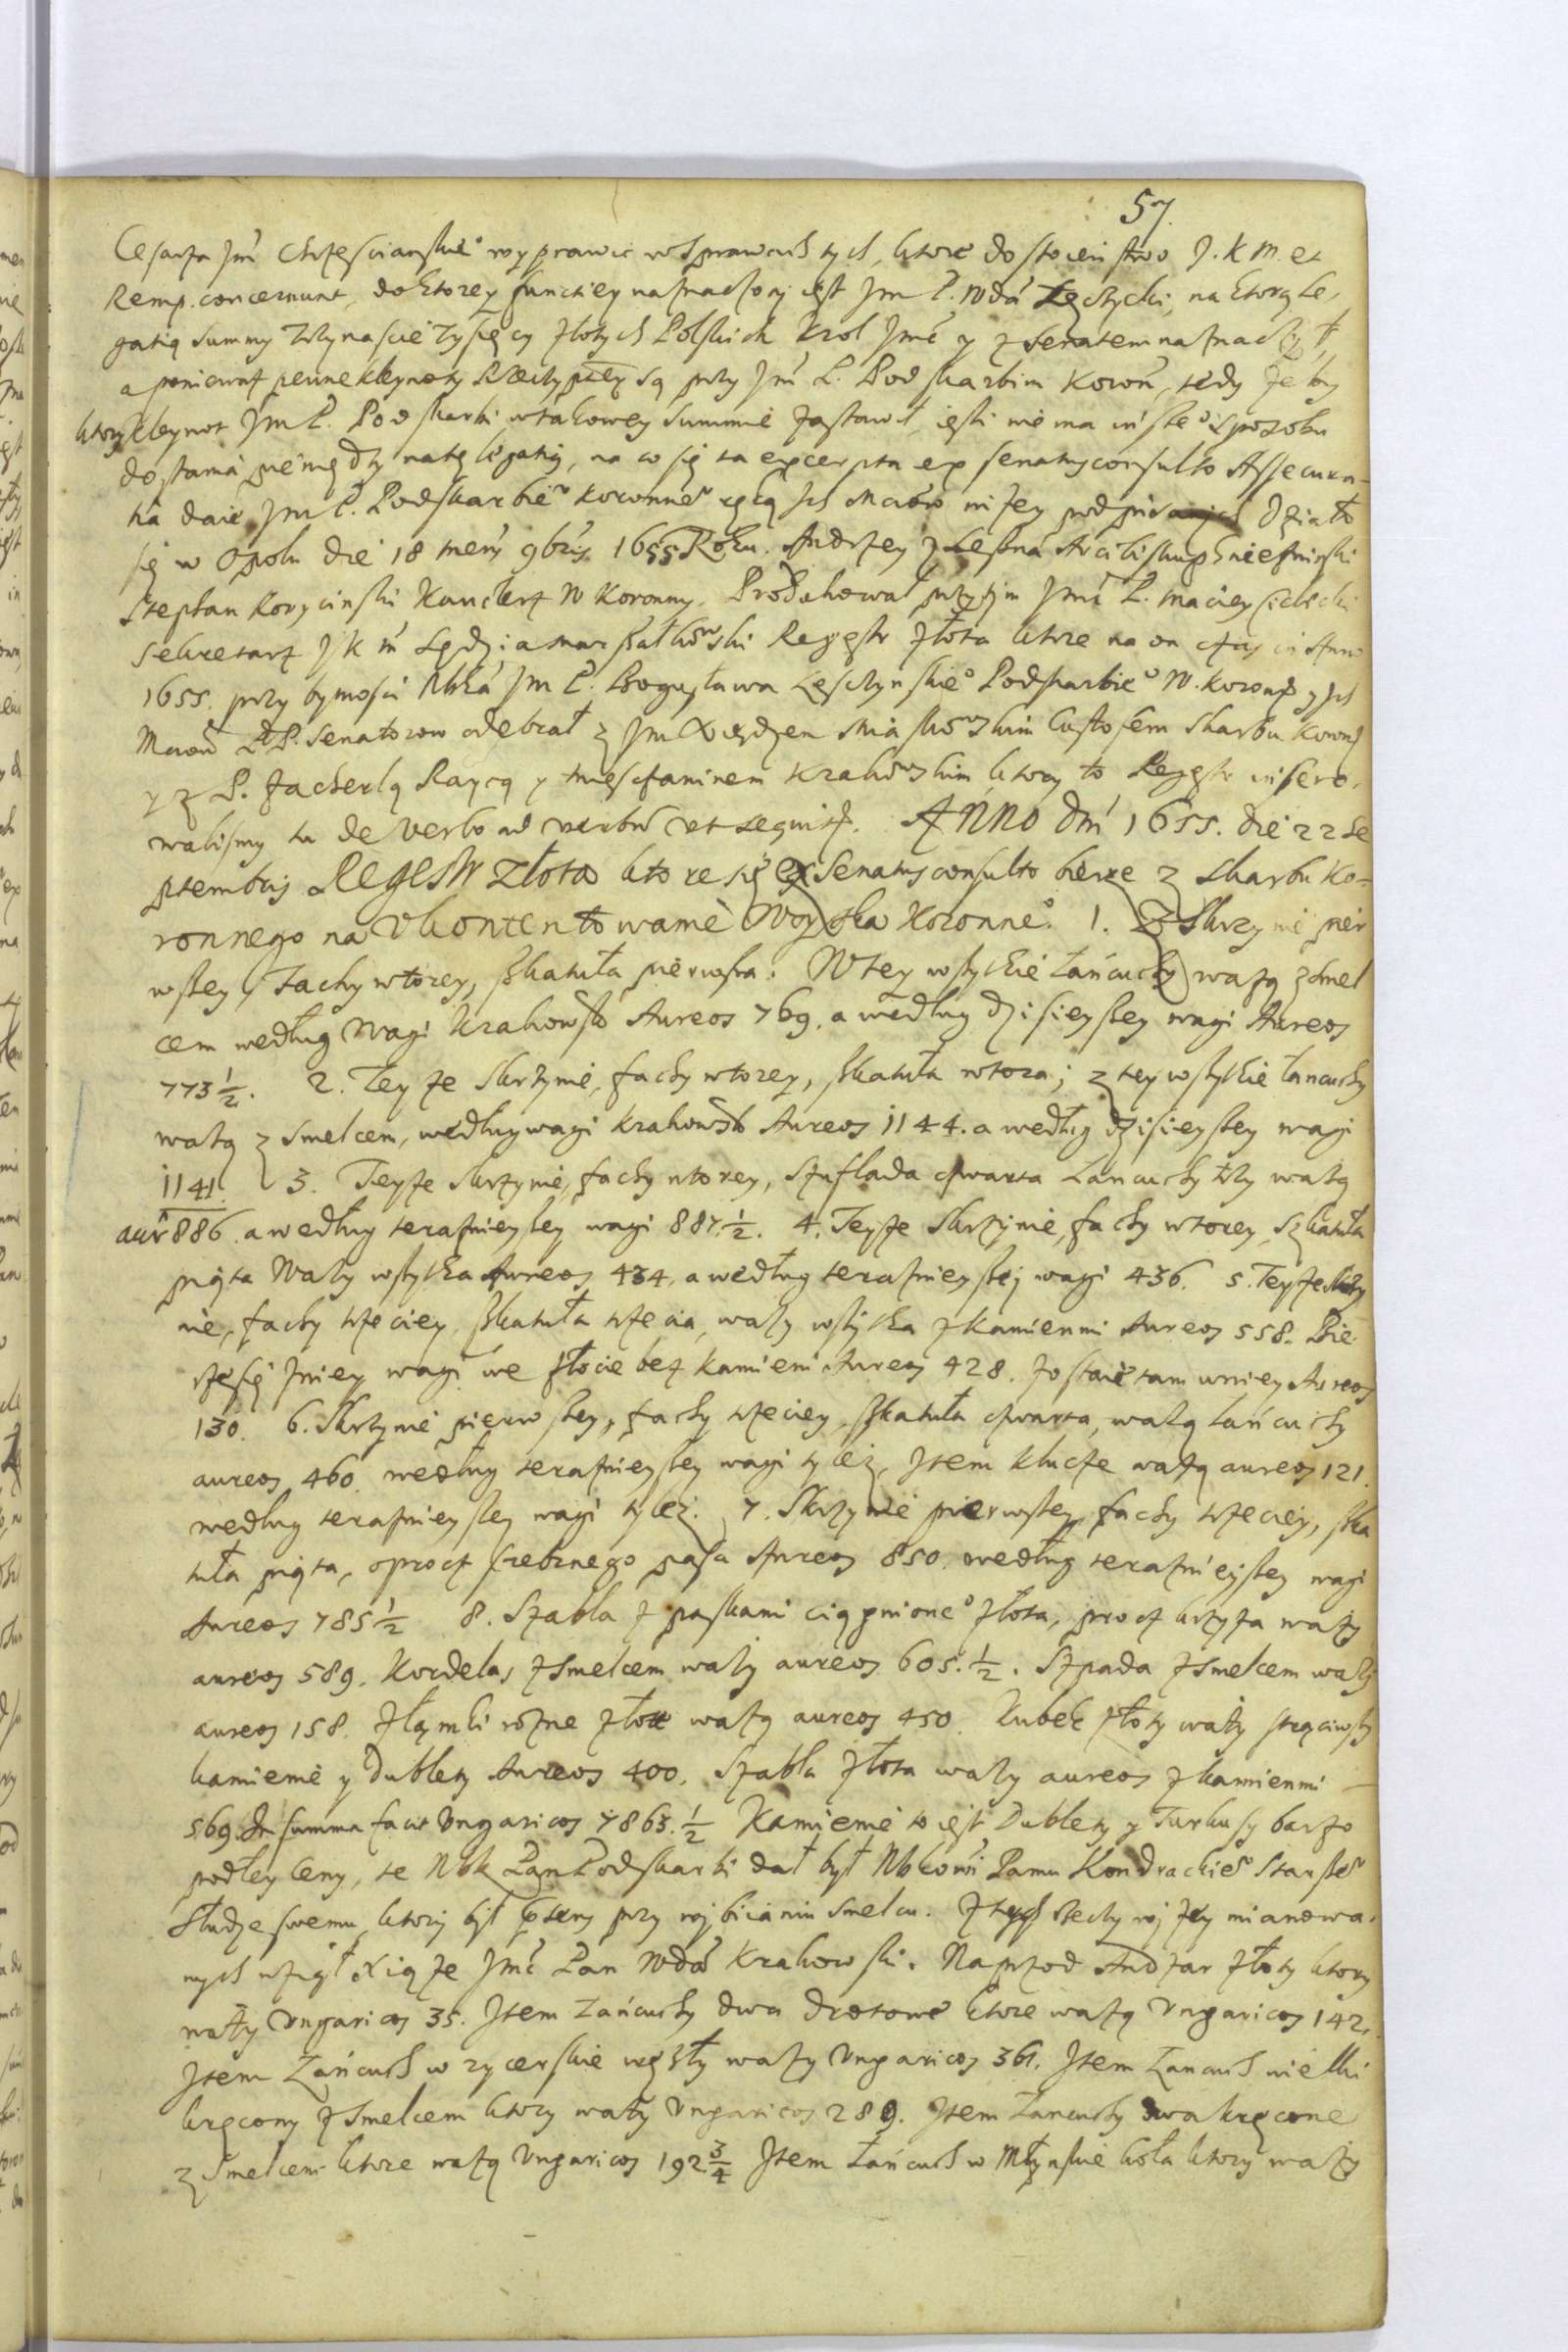 57.
Cesarza Jm̃ Chrzesciańskie° wyprawic w sprawach tych, ktore dostoienstwo J. K. M. et
Remp. concernunt, do ktorey functiey naznaczony iest Jm P. Wda Łęczycki, na ktorą Le-
gatią summy Trzynascie Tysięcy złotych Polskich Krol Jmć y z Senatem naznaczył,
a poniewaz pewne kleynoty Rzeczyptey są przy Jm̃ P. Podskarbim Koroñ, tedy zeby
ktory kleynot Jm P. Podskarbi w takowey summie zastawił, iesli nie ma insze° sposobu
dostania pieniędzy na tę legatią, na co się ta excerpta ex senatusconsulto Assecura-
tia daie Jm P. Podskarbie° Koronne° ręką Ich Mciów nizey podpisanych Działo
się w Opolu die 18 mens 9bris 1655 Roku. Andrzey z Leszna Arcibiskup Gnieznienski
Stephan Koryciński Kanclerz W Koronny. Produkował przytym Jmć P. Maciey
Sekretarz J K M Sędzia marszałkowski Regestr złota ktore na on czas in Anno
1655. przy bytności Jm P. Bogusława Lesczynskie° Podskarbie° W. Koron y Ich
Mciow PP. Senatorow odebrał z Jm Xiędzem Custosem Skarbu Koron
y z P. Zacherlą Raycą y mieszczaninem Krakowskim ktory to Regestr insero-
walismy tu de verbo ad verbũ ut sequitr. Anno Dni 1655. die 22 Se
ptembris Regestr złota ktore się ex Senatusconsulto bierze z skarbu Ko-
ronnego na Ukontentowanie Woyska Koronne°. 1. Z Skrzynie pier
wszey fachy wtorey, szkatuła pierwsza. W tey wszytkie łańcuchy wazą z smel
cem według Wagi Krakowsk Aureos 769. a według dzisieyszey wagi Aureos
773 1/2. 2. Teyze Skrzynie, fachy wtorey, szkatuła wtora; z tey wszytkie łancuchy
wazą z smelcem, według wagi Krakowsk Aureos 1144. a według dzisieyszey wagi
1141. 3. Teyze skrzynie, fachy wtorey, szuflada czwarta Lancuchy trzy wazą
aur 886 a według teraznieyszey wagi 887. 1/2. 4. Teyze Skrzynie, fachy wtorey, Szkatuła
piąta Wazy wszytka Aureos 434, a według teraznieyszej wagi 436. 5. Teyze Skrzy
nie, fachy trzeciey szkatuła trzecia, wazy wszytka z kamienmi Aureos 558. Bie
rze się zniey wagi we złocie bez kamieni Aureos 428. zostaie tam wniey Aureos
130. 6. Skrzynie pierwszey, fachy trzeciey, szkatuła czwarta, wazą łańcuchy
aureos 460. według teraznieyszey wagi tyleż, Item klucze wazą aureos 121.
według teraznieyszey wagi tyleż. 7. Skrzynie pierwszey fachy trzeciey, szka
tuła piąta, oprocz srebrnego pasa Aureos 850. według teraznieyszey wagi
Aureos 785 1/2 8. Szabla z paskami ciągnione° złota, procz krzyza wazy
aureos 589. Kordelas z smelcem wazy aureos 605. 1/2. Szpada z smelcem wazy
aureos 158. złomki rozne złote wazą aureos 450. Kubek złoty wazy strąciwszy
kamienie y Dublety Aureos 400. Szabla złota wazy aureos z kamienmi —
569. In summa facit Ungaricos 7863. 1/2 Kamienie to iest Dublety y Turkusy barzo
podłey ceny, te Nbk Pan Podskarbi dał był Panu Kondrackie° Starsze°
Słudze swemu, ktory był przy rozbiciániu smelcu. Z tych rzeczy wyzey mianowa-
nych wziął Xiąze Jmć Pan Wda Krakowski. Naprzod Andzar złoty ktory
wazy Ungaricos 35. Item Łańcuchy dwa drotowe ktore wazą Ungaricos 142.
Item Łańcuch w rycerskie węzły wazy Ungaricos 361. Item Łancuch wielki
kręcony z smelcem ktory wazy Ungaricos 289. Item Łancuchy dwa kręcone
z smelcem ktore wazą Ungaricos 192 3/4 Item Łańcuch w Młynskie koła ktory wazy